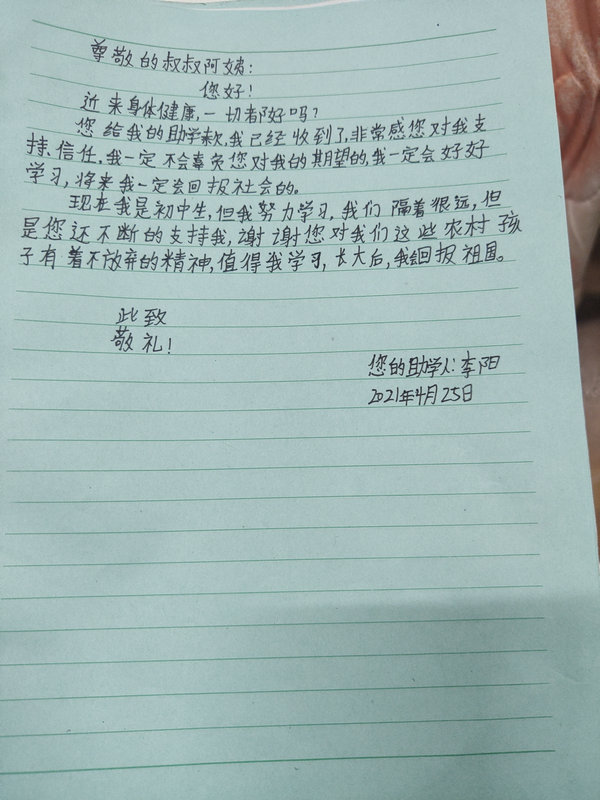 尊敬的叔叔阿姨:
您好!
近来身体健康,一切都好吗?
您给我的助学款,我已经收到了,非常感您对我支
持、信任。我一定不会辜负您对我的期望的,我一定会好好
学习,将来我一定会回报社会的。
现在我是初中生,但我努力学习,我们隔着很远,但
是您还不断的支持我,谢谢您对我们这些农村孩
子有着不放弃的精神,值得我学习,长大后,我会回报祖国。
此致
敬礼!
您的助学人:李阳
2021年4月25日